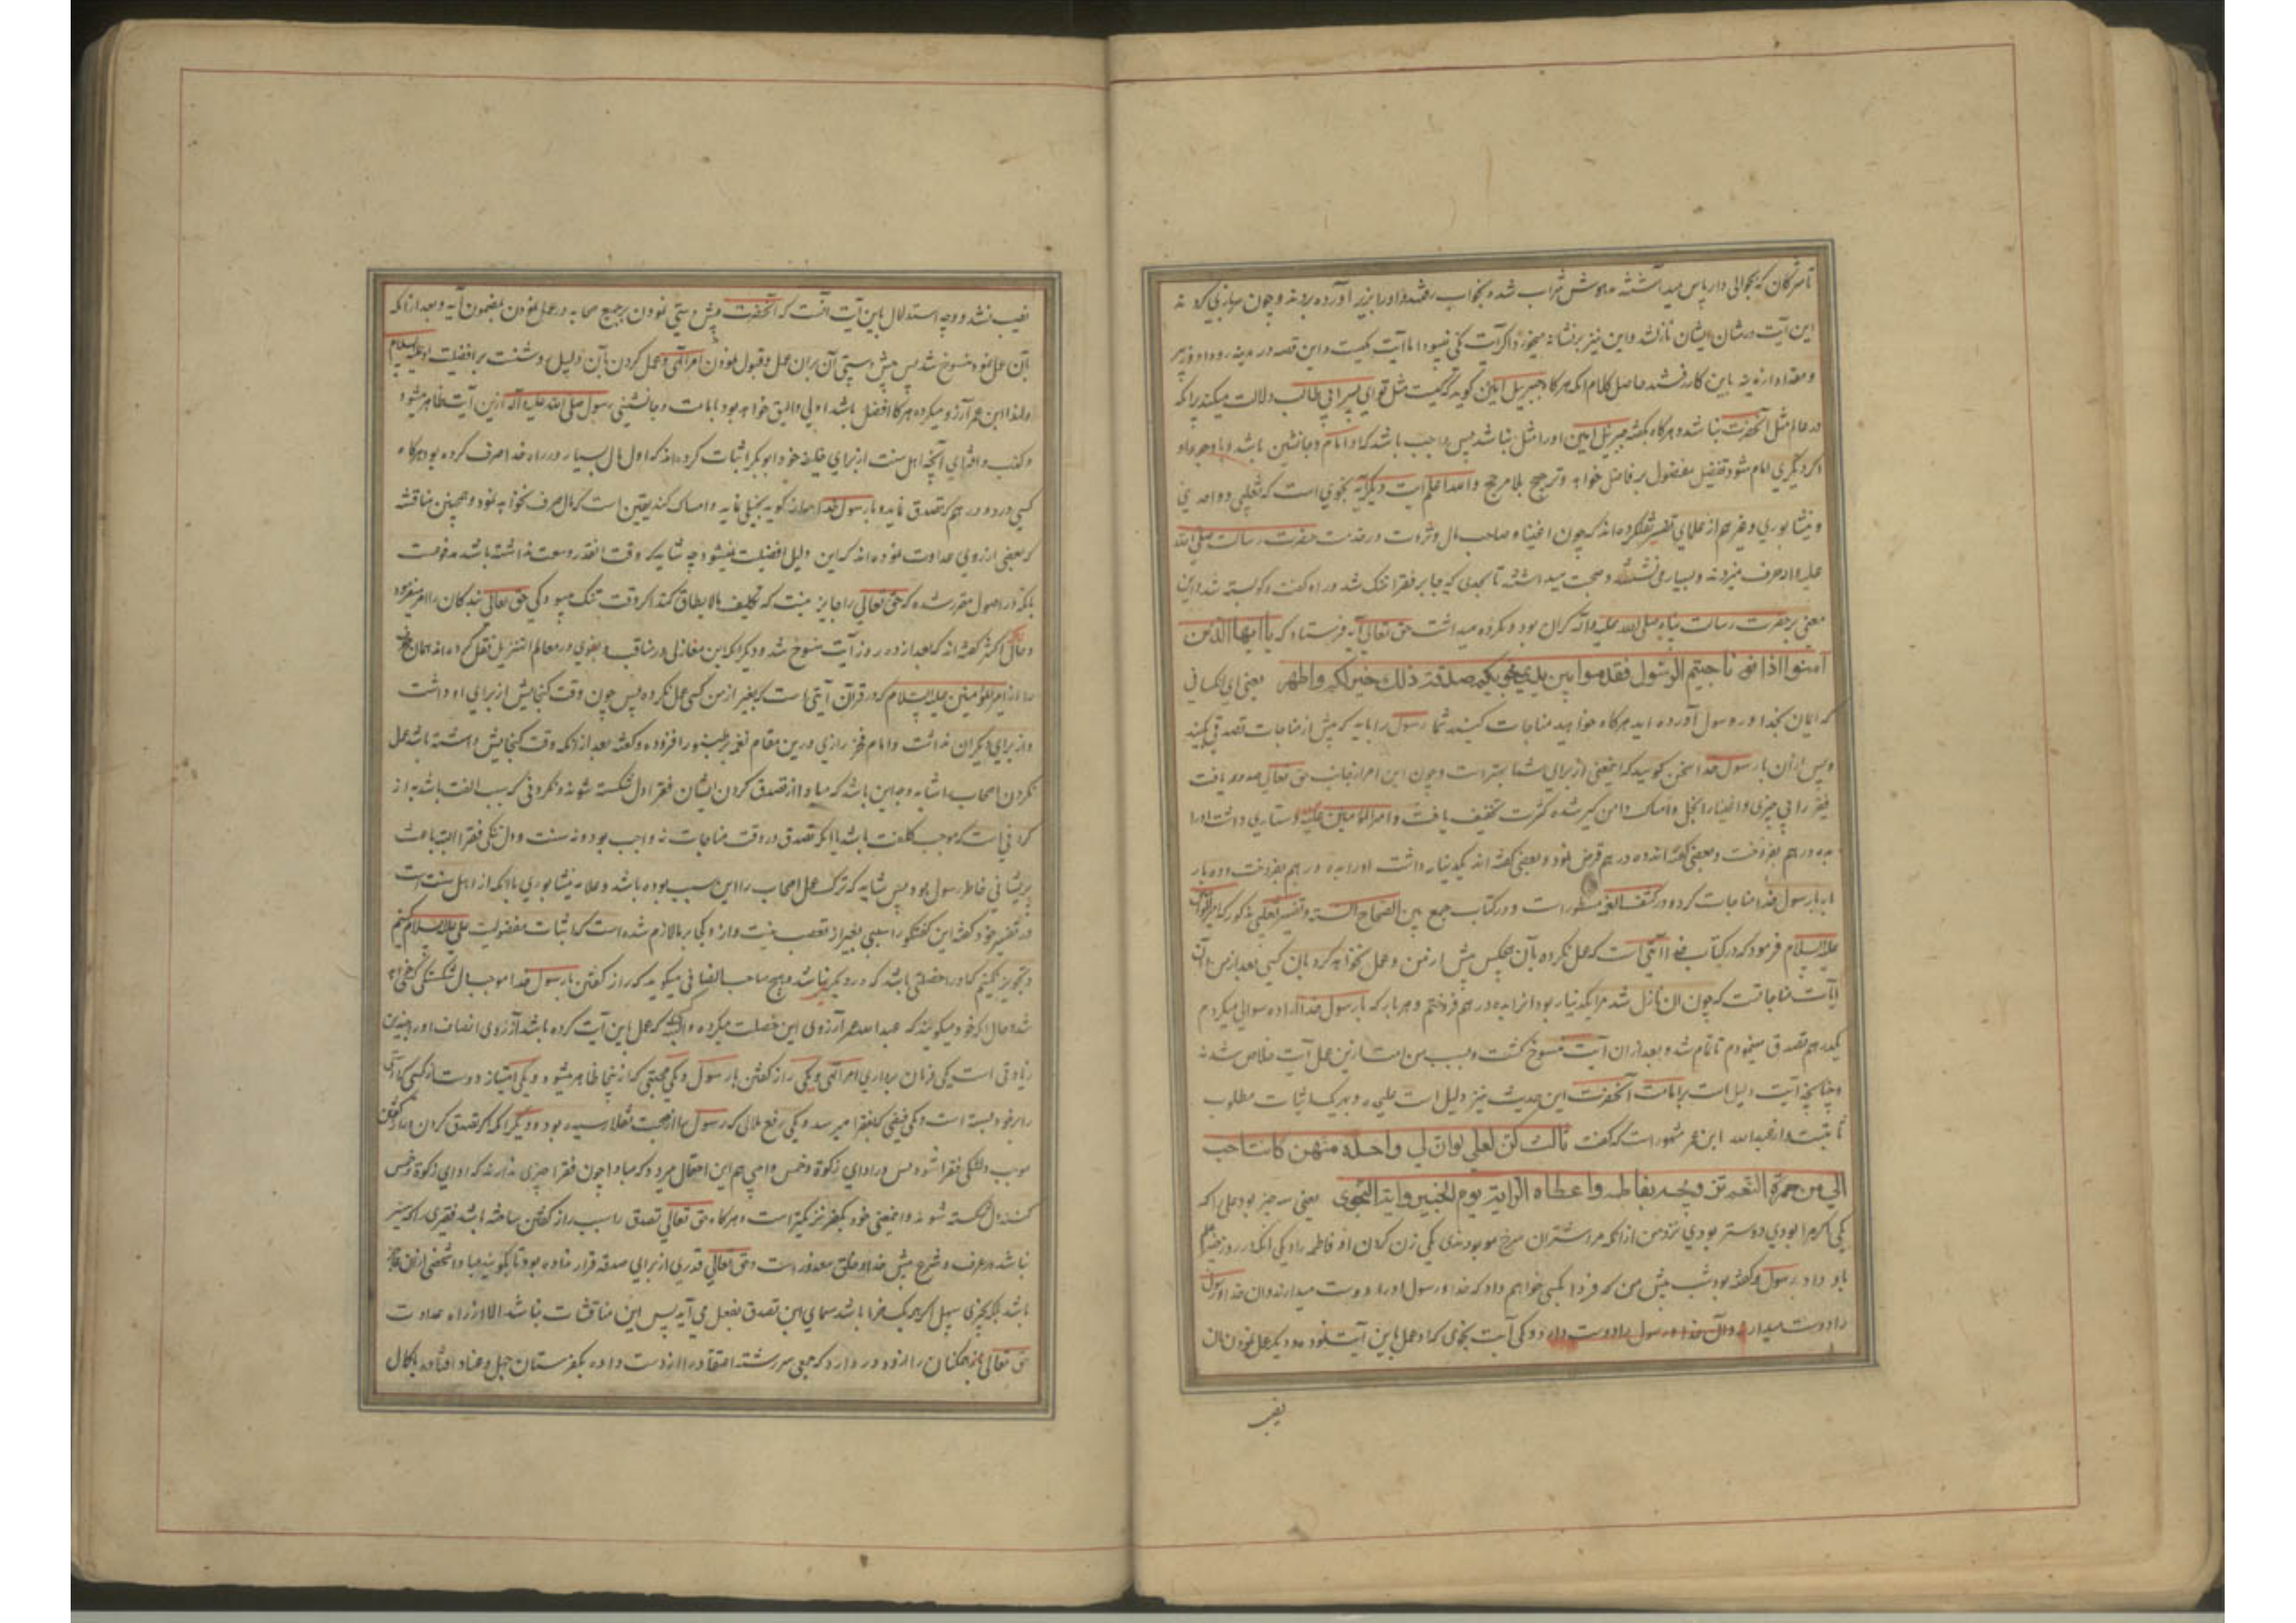 تا مشرکان که بحوالی دار پاس میداشتند مدهوش شراب شده بخواب رفتند و او را بزیر آورده بردند و چون سربازی کردند
این آیت در شان ایشان نازل شد و این نیز بر نشانه میخورد اگر آیت مکی نمیبود اما آیت مکیست و این قصه در مدینه رو داد و زبیر
و مقداد از مدینه باین کار رفتند حاصل کلام آنکه هرگاه جبرییل امین گوید که کیست مثل تو ای پسر ابی طالب دلالت میکند برانکه
در عالم مثل آنحضرت نباشد و هرگاه بگفته جبرییل امین او را مثل نباشد پس واجب باشد که او امام و جانشین باشد و با وجود او
اگر دیگری امام شود تفضیل مفضول بر فاضل خواهد و ترجیح بلا مرجح والله اعلم آیت دیگر آیه نجوی است که ثعلبی و واحدی
و نیشابوری و غیرهم از علمای تفسیر نقل کرده‌اند که چون اغنیا و صاحب مال و ثروت در خدمت حضرت رسالت صلی الله
علیه و اله حرف میزدند و بسیار می نشستند و صحبت میداشتند تا بحدی که جا بر فقرا تنک شد و راه گفت و گو بسته شد و این
معنی بر حضرت رسالت پناه صلی الله علیه و اله گران بود و مکروه میداشت حق تعالی آیه فرستاد که یا ایها الذین
آمنوا اذا ناجیتم الرسول فقدموا بین یدی نجویکم صدقة ذلك خیر لکم واطهر یعنی ای کسانی
که ایمان بخدا و رسول آورده اید هرگاه خواهید مناجات کنید شما رسول را باید که پیش از مناجات تصدقی بکنید
و پس از آن با رسول خدا سخن گویید که اینمعنی از برای شما بهتر است و چون این امر از جانب حق تعالی صدور یافت
فقرا را بی چیزی و اغنیا را بخل و امساک دامن گیر شده کثرت تخفیف یافت و امیرالمؤمنین علیه السلام دستاری داشت او را
بده درهم بفروخت و بعضی گفته‌اند ده درهم قرض نمود و بعضی گفته‌اند یکدینار داشت او را بده درهم بفروخت و ده بار
با رسول خدا مناجات کرد و در کشف الغمه مسطور است و در کتاب جمع بین الصحاح السته و تفسیر ثعلبی مذکور که امیرالمؤمنین
علیه السلام فرمود که در کتاب خدا آیتی است که عمل نکرده بآن هیچکس پیش از من و عمل نخواهد کرد بآن کسی بعد از من و آن
آیت مناجاتست که چون آن نازل شد مرا یکدینار بود آنرا بده درهم فروختم و هر بار که با رسول خدا اراده سوالی میکردم
یکدرهم تصدق مینمودم تا تمام شد و بعد از آن آیت منسوخ گشت و بسبب من امت ازین عمل آیت خلاص شدند
و چنانچه آیت دلیل است بر امامت آنحضرت این حدیث نیز دلیل است علی ... اثبات مطلوب
ثابتست و از عبدالله ابن عمر مشهور است که گفت ثلاث کن لعلی لو ان لی واحدة منهن کانت احب
الی من حمرة النعم تزویجه بفاطمه واعطاه الرایة یوم الخیبر وایة النجوی یعنی سه چیز بود علی را که
یکی اگر مرا بودی دوستر بودی نزد من از آنکه مرا شتران سرخ مو بودندی یکی زن کردن او فاطمه را و یکی آنکه در روز خیبر علم
باو داد رسول و گفته بود شب پیش من که فردا بکسی خواهم داد که خدا و رسول او را دوست میدارند و آن خدا و رسول
را دوست میدارد ... و یکی آیت نجوی که او عمل باین آیت نمود و دیگر عمل نمودن بآن
نصیب
نصیب نشد و وجه استدلال باین آیت آنست که آنحضرت پیش دستی نمودن بر جمیع صحابه در عمل نمودن بمضمون آیه و بعد از آنکه
بآن عمل نمود منسوخ شد پس پیش دستی آن بران عمل و قبول نمودن امر الهی و عمل کردن بآن دلیلی روشنست بر افضلیت او علیه السلام
و لهذا ابن عمر آرزو میکرده هر که افضل باشد اولی و الیق خواهد بود بامامت و جانشینی رسول صلی الله علیه و آله ازین آیت ظاهر میشود
و کذب و افترای آنچه اهل سنت از برای خلیفه خود ابوبکر اثبات کرده‌اند که او مال بسیار در راه خدا صرف کرده بود هرگاه
کسی در دو درهم که تصدق نماید و با رسول خدا راز گوید بخیلی نماید و امساک کند یقین است که مال صرف نخواهد نمود و همچنین مناقشه
که بعضی از روی عداوت نموده‌اند که این دلیل افضلیت نمیشود چه شاید که وقت آنقدر وسعت نداشته باشد مدفوعست
بلکه در اصول مقرر شده که حق تعالی را جایز نیست که تکلیف مالایطاق کند اگر وقت تنک میبود کی حق تعالی بندگان را امر میفرمود
و حال آنکه اکثر گفته‌اند که بعد از ده روز آیت منسوخ شد و دیگر آنکه ابن مغازلی در مناقب و بغوی در معالم التنزیل نقل کرده‌اند همان
از امیرالمؤمنین علیه السلام که در قرآن آیتی است که بغیر از من کسی عمل نکرده پس چون وقت گنجایش از برای او داشت
و از برای دیگران نداشت و امام فخر رازی درین مقام نغمه بر طنبور افزوده و گفته بعد از آنکه وقت گنجایش داشته باشد عمل
نکردن اصحاب را شاید وجه این باشد که مبادا از تصدق کردن ایشان فقرا دل شکسته شوند و نکردنی که سبب الفت باشد به از
کردنی است که موجب کلفت باشد یا آنکه تصدق در وقت مناجات نه واجب بود و نه سنت و دل تنگی فقرا البته باعث
پریشانی خاطر رسول بود پس شاید که ترک عمل اصحاب را این سبب بوده باشد و علامه نیشابوری با آنکه از اهل سنت است
در تفسیر خود گفته این گفتگو را سببی بغیر از تعصب نیست و از کجا بر ما لازم شده است که اثبات مفضولیت علی علیه السلام کنیم
و تجویز نکنیم که او را خصلتی باشد که در دیگری نباشد و هیچ صاحب انصافی میگوید که راز گفتن با رسول خدا موجب دل شکستگی کسی خواهد
شد و حال آنکه خود میگویند که عبدالله عمر آرزوی این خصلت میکرده و آنکه که عمل باین آیت کرده باشد از روی انصاف او را چندین
زیادتی است یکی فرمان برداری امر الهی و یکی راز گفتن با رسول و یکی محبتی که از نجا ظاهر میشود و یکی امتیاز دوست از کسی که ...
را بر خود بسته است و یکی نفعی که بفقرا میرسد و یکی رفع ملالی که رسول را از صحبت ثقلا رسیده بود و دیگر آنکه اگر تصدق کردن و راز گفتن
موجب دلتنگی فقرا شود پس در ادای زکوة و خمس واجبی هم این احتمال میرود که مبادا چون فقرا چیزی ندارند که ادای زکوة و خمس
کنند دل شکسته شوند و اینمعنی خود بکفر نزدیکتر است و هرگاه حق تعالی تصدق را سبب راز گفتن ساخته باشد فقیری را که میسر
نباشد در عرف و شرع پیش خدا و خلق معذور است و حق تعالی قدری از برای صدقه قرار نداده بود تا بگویند مبادا شخصی از آن عاجز
باشد بلکه بچیزی سهل اگر همه یک خرما باشد مسمای این تصدق بفعل می آید پس این مناقشات نباشد الا از راه عداوت
حق تعالی همکنان را از آن دور دارد که جمعی سر رشته اعتقاد را از دست داده بکفرستان جهل و عناد افتاده‌اند